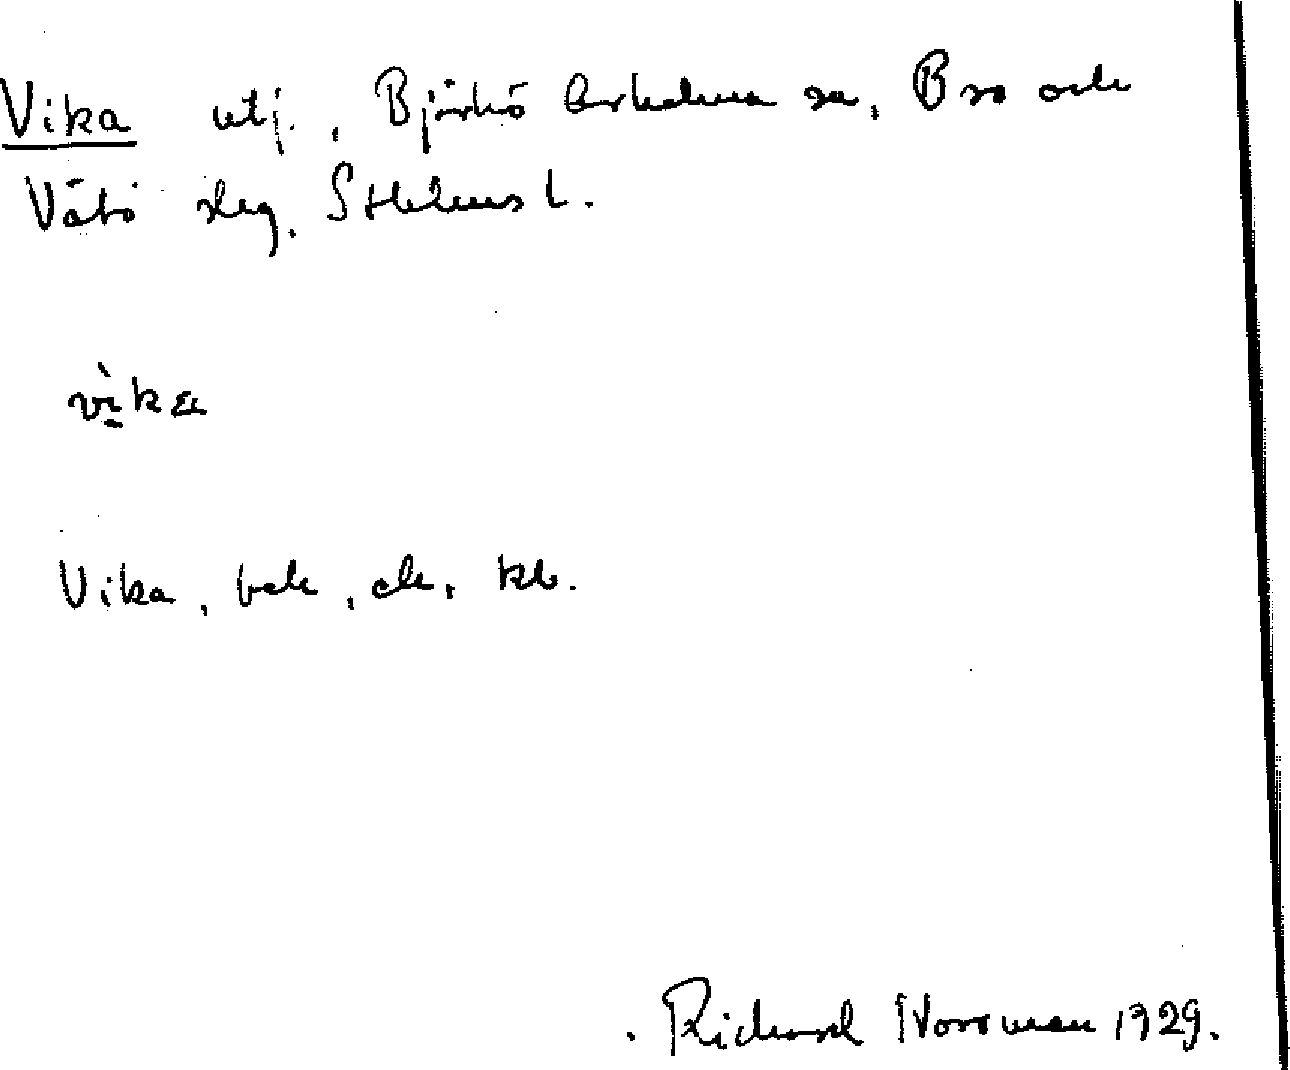 Vika utj., Björkö Arholma sn, Bro och
Vätö skg, Sthlms l.
vì̱ka
Vika, bek, ek. kb.
Richard Norrman 1929.